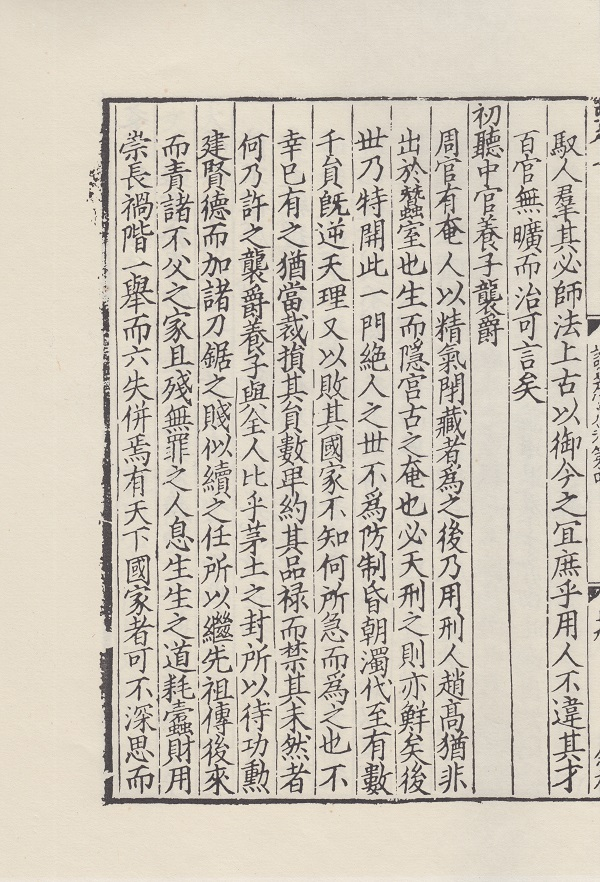 馭人羣其必師法上古以御今之冝庶乎用人不違其才
百官無曠而治可言矣
初聽中官養子襲爵
周官有奄人以精氣閉藏者爲之後乃用刑人趙高猶非
出於蠶室也生而隱宫古之奄也必天刑之則亦鮮矣後
世乃特開此一門絕人之世不爲防制昏朝濁代至有數
千負旣逆天理又以敗其國家不知何所急而爲之也不
幸已有之猶當裁損其負數畢約其品禄而禁其未然者
何乃許之襲爵養子與全人比乎茅土之封所以待功勲
建賢德而加諸刀鋸之賤似續之任所以繼先祖傳後來
而責諸不父之家且殘無罪之人息生生之道耗蠹財用
崇長禍階一舉而六失併焉有天下國家者可不深思而